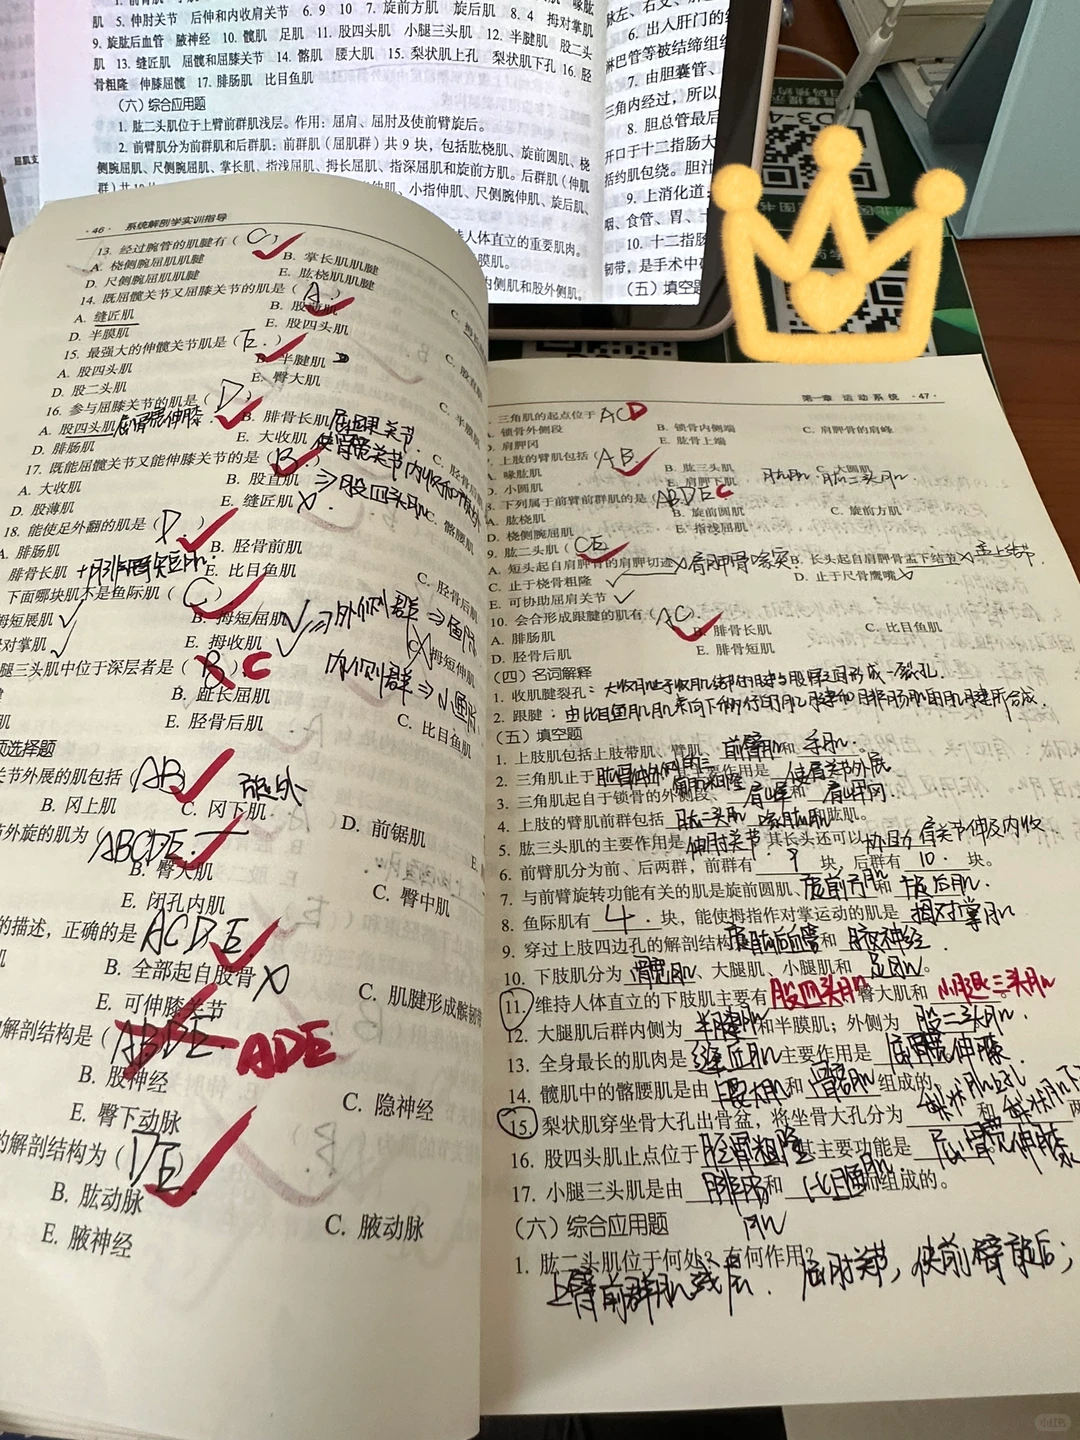 肌 5. 伸肘关节 后伸和内收肩关节 6. 9 10 7. 旋前方肌 旋后肌 8. 4 拇对掌肌
9. 旋肱后血管 腋神经 10. 髋肌 足肌 11. 股四头肌 小腿三头肌 12. 半腱肌 股二头
肌 13. 缝匠肌 屈髋和屈膝关节 14. 髂肌 腰大肌 15. 梨状肌上孔 梨状肌下孔 16. 胫
骨粗隆 伸膝屈髋 17. 腓肠肌 比目鱼肌
(六) 综合应用题
1. 肱二头肌位于上臂前群肌浅层。作用：屈肩、屈肘及使前臂旋后。
2. 前臂肌分为前群肌和后群肌：前群肌（屈肌群）共 9 块，包括肱桡肌、旋前圆肌、桡
侧腕屈肌、尺侧腕屈肌、掌长肌、指浅屈肌、拇长屈肌、指深屈肌和旋前方肌。后群肌（伸肌
小指伸肌、尺侧腕伸肌、旋后肌、
持人体直立的重要肌肉。
膜肌。
内侧肌和股外侧肌。
6. 出入肝门的
淋巴管等被结缔组织
7. 由胆囊管、
三角内经过，所以
8. 胆总管最后
开口于十二指肠大
括约肌包绕。胆汁
9. 上消化道：
咽、食管、胃、十
10. 十二指肠
韧带，是手术中确
(五) 填空题
· 46 · 系统解剖学实训指导
13. 经过腕管的肌腱有 ( C )
A. 桡侧腕屈肌肌腱
B. 掌长肌肌腱
D. 尺侧腕屈肌肌腱
E. 肱桡肌肌腱
14. 既屈髋关节又屈膝关节的肌是 ( A. )
A. 缝匠肌
B. 股薄肌
D. 半膜肌
E. 股四头肌
15. 最强大的伸髋关节肌是 ( E. )
A. 股四头肌
B. 半腱肌
D. 股二头肌
E. 臀大肌
16. 参与屈膝关节的肌是 ( D )
A. 股四头肌 屈髋伸膝
B. 腓骨长肌 屈踝关节
D. 腓肠肌
E. 大收肌 使髋关节内收和
17. 既能屈髋关节又能伸膝关节的是 ( B. )
A. 大收肌
B. 股直肌 ⇒股四头肌
C. 髂腰肌
D. 股薄肌
E. 缝匠肌 X
18. 能使足外翻的肌是 ( D. )
A. 腓肠肌
B. 胫骨前肌
C. 胫骨后肌
腓骨长肌 +腓骨短肌.
E. 比目鱼肌
下面哪块肌不是鱼际肌 ( C )
拇短展肌 √
B. 拇短屈肌 √ ⇒外侧群⇒鱼际
C. 拇短伸肌
对掌肌 √
E. 拇收肌 √ 内侧群⇒小鱼际
腿三头肌中位于深层者是 ( B ) C
B. 趾长屈肌
C. 比目鱼肌
E. 胫骨后肌
项选择题
关节外展的肌包括 ( AB )
B. 冈上肌
C. 冈下肌 旋外
D. 前锯肌
节外旋的肌为 ABCDE.
B. 臀大肌
C. 臀中肌
E. 闭孔内肌
的描述，正确的是 ACDE.
B. 全部起自股骨 X
C. 肌腱形成髌韧带
E. 可伸膝关节
的解剖结构是 ( ABDE ADE
B. 股神经
C. 隐神经
E. 臀下动脉
的解剖结构为 ( DE.
B. 肱动脉
C. 腋动脉
E. 腋神经
第一章 运动系统 · 47 ·
三角肌的起点位于 ACD
锁骨外侧段
B. 锁骨内侧端
C. 肩胛骨的肩峰
D. 肩胛冈
E. 肱骨上端
上肢的臂肌包括 ( AB
A. 喙肱肌
B. 肱三头肌
C. 大圆肌
D. 小圆肌
E. 肩胛下肌
下列属于前臂前群肌的是 ABDEC
A. 肱桡肌
B. 旋前圆肌
C. 旋前方肌
D. 桡侧腕屈肌
E. 指浅屈肌
9. 肱二头肌 ( CE
A. 短头起自肩胛骨的肩胛切迹 X 肩胛骨喙突
B. 长头起自肩胛骨盂下结节 X 盂上结节
C. 止于桡骨粗隆 √
D. 止于尺骨鹰嘴 X
E. 可协助屈肩关节 √
10. 会合形成跟腱的肌有 ( AC )
A. 腓肠肌
B. 腓骨长肌
C. 比目鱼肌
D. 胫骨后肌
E. 腓骨短肌
(四) 名词解释
1. 收肌腱裂孔：大收肌止于收肌结节的腱与股骨之间形成一裂孔.
2. 跟腱：由比目鱼肌肌束向下移行的肌腱和腓肠肌的肌腱所合成.
(五) 填空题
1. 上肢肌包括上肢带肌、臂肌、前臂肌和 手肌。
2. 三角肌止于 肱骨体外侧的三角肌粗隆 其主要作用是 使肩关节外展
3. 三角肌起自于锁骨的外侧段、肩峰 和 肩胛冈.
4. 上肢的臂肌前群包括 肱二头肌 喙肱肌 肱肌。
5. 肱三头肌的主要作用是 伸肘关节. 其长头还可以 协助肩关节伸及内收
6. 前臂肌分为前、后两群，前群有 9 块，后群有 10. 块。
7. 与前臂旋转功能有关的肌是旋前圆肌、旋前方肌 和 旋后肌.
8. 鱼际肌有 4. 块，能使拇指作对掌运动的肌是 拇对掌肌
9. 穿过上肢四边孔的解剖结构 旋肱后血管 和 腋神经.
10. 下肢肌分为 髋肌、大腿肌、小腿肌和 足肌。
11. 维持人体直立的下肢肌主要有 股四头肌 臀大肌和 小腿三头肌
12. 大腿肌后群内侧为 半腱肌 和半膜肌；外侧为 股二头肌.
13. 全身最长的肌肉是 缝匠肌 主要作用是 屈髋伸膝.
14. 髋肌中的髂腰肌是由 腰大肌 和 髂肌 组成的。
15. 梨状肌穿坐骨大孔出骨盆，将坐骨大孔分为 梨状肌上孔 和 梨状肌下
16. 股四头肌止点位于 胫骨粗隆 其主要功能是 屈髋伸膝
17. 小腿三头肌是由 腓肠肌 和 比目鱼肌 而组成的。
(六) 综合应用题
1. 肱二头肌位于何处？有何作用？
上臂前群肌浅层. 屈肘关节，使前臂旋后；
小红书